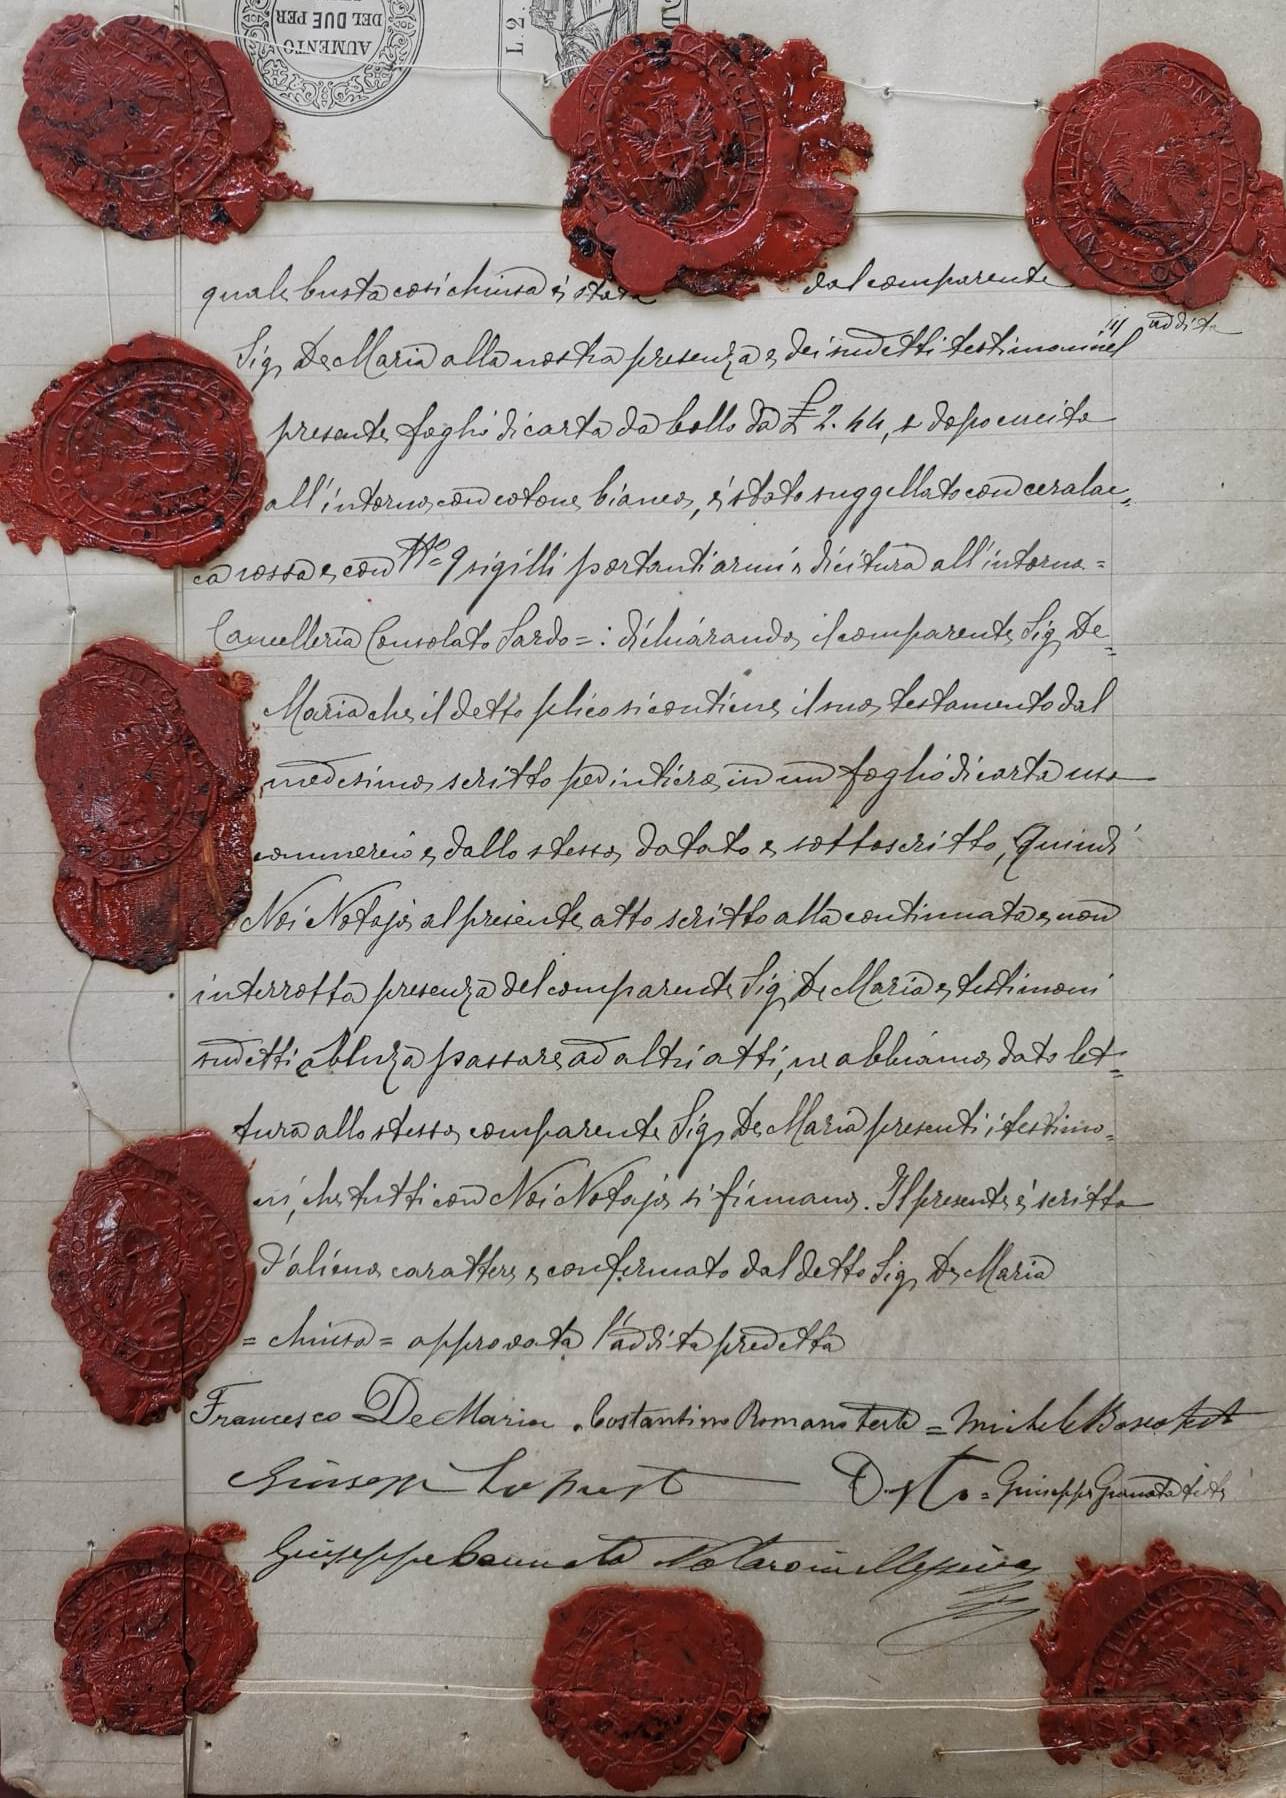 AUMENTO
DEL DUE PER
L. 2.
quale busta così chiusa è stata dal comparente
Sig. De Maria alla nostra presenza e dei sudetti testimoni nel
addita
presente foglio di carta da bollo da £ 2.44, e dopo cucita
all'intorno con cotone bianco, è stato suggellato con ceralac=
ca rossa e con No 9 sigilli portanti armi e dicitura all'intorno =
Cancelleria Consolato Sardo = : dichiarando il comparente Sig. De
Maria che il detto plico si contiene il suo testamento dal
medesimo scritto per intiero in un foglio di carta uso
commercio e dallo stesso datato e sottoscritto, Quindi
Noi Notajo al presente atto scritto alla continuata e non
interrotta presenza del comparente Sig. De Maria e testimoni
sudetti senza passare ad altri atti, ne abbiamo dato let=
tura allo stesso comparente Sig. De Maria presenti i testimo=
ni, che tutti con Noi Notajo si firmano. Il presente è scritto
d'alieno carattere e confermato dal detto Sig. De Maria
= chiusa = approvata l'addita predetta
Francesco De Maria . Costantino Romano teste = Michele Bosco test
Giuseppe = Giuseppe Granata teste
Giuseppe Cannata Notaro in Messina